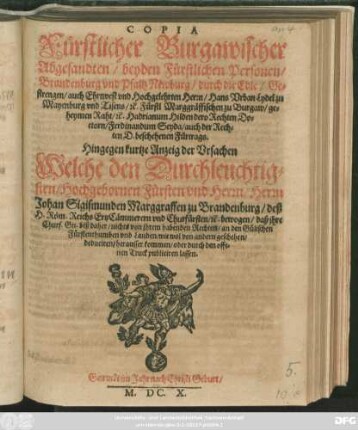 COPIA
Fürstlicher Burgawischer
Abgesandten / beyden Fürstlichen Personen /
Brandenburg vnd Pfaltz Neuburg / durch die Edle / Ge-
strengen / auch Ehrvest vnd Hochgelehrten Herrn / Hans Vrban Eydel zu
Mayenburg vnd Tisens / ꝛc. Fürstl. Marggräffischen zu Burgaw / ge-
heymen Raht / ꝛc. Hadrianum Hilden bero Rechten Do-
ctorn / Ferdinandum Seyda / auch der Rech-
ten D. beschehenen Fürtrags.
Hingegen kurtze Anzeig der Vrsachen
Welche den Durchleuchtig-
sten / Hochgebornen Fürsten vnd Herrn / Herrn
Johan Sigismunden Marggraffen zu Brandenburg / deß
H. Röm. Reichs Ertz Cämmerern vnd Churfürsten / ꝛc. bewogen / daß ihre
Churf. Gn. biß daher / nichts von ihrem habenden Rechten / an den Gülischen
Fürstenthumben vnd Landen, wie wol von andern geschehen /
heraussser kommen / oder durch den offe-
nen Truck publiciren lassen.
Getruckt im Jahr nach Christi Geburt /
M. DC. X.
5.